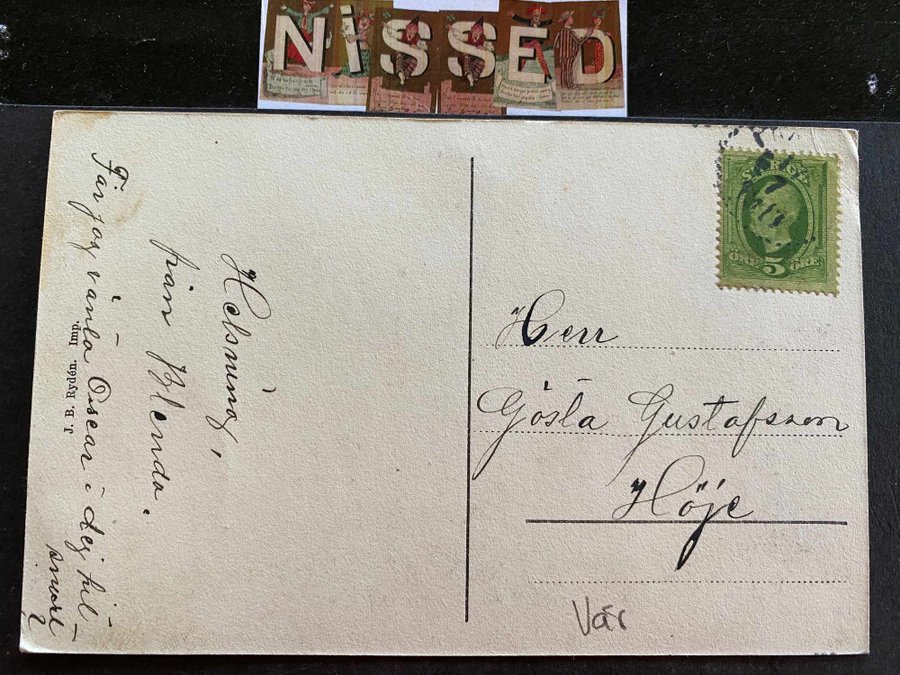 NiSSED
SVERIGE
ÖRE 5 ÖRE
Herr
Gösta Gustafsson
Höje
Vår
Helsning,
från Blenda.
Får jog vänta Oscar i dej hit
snart?
J. B. Rydén. Imp.